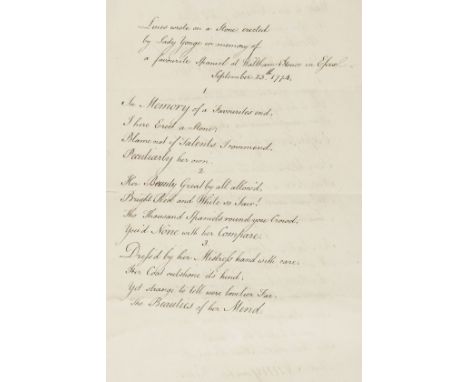 Lines wrote on a Stone erected
by Lady Yonge in memory of
a favourite Spaniel at Waltham House in Essex
September 23th 1774.
1
In Memory of a Favourites end,
I here Erect a Stone,
Blame not if Talents I commend,
Peculiarly her own.
2
Her Beauty Great by all allow'd,
Bright Red and White so Fair!
Tho Thousand Spaniels round you Crowd,
You'd None with her Compare.
3
Dress'd by her Mistress hand with care,
Her Coat outshone its kind,
Yet strange to tell more lovelier Far
The Beauties of her Mind.